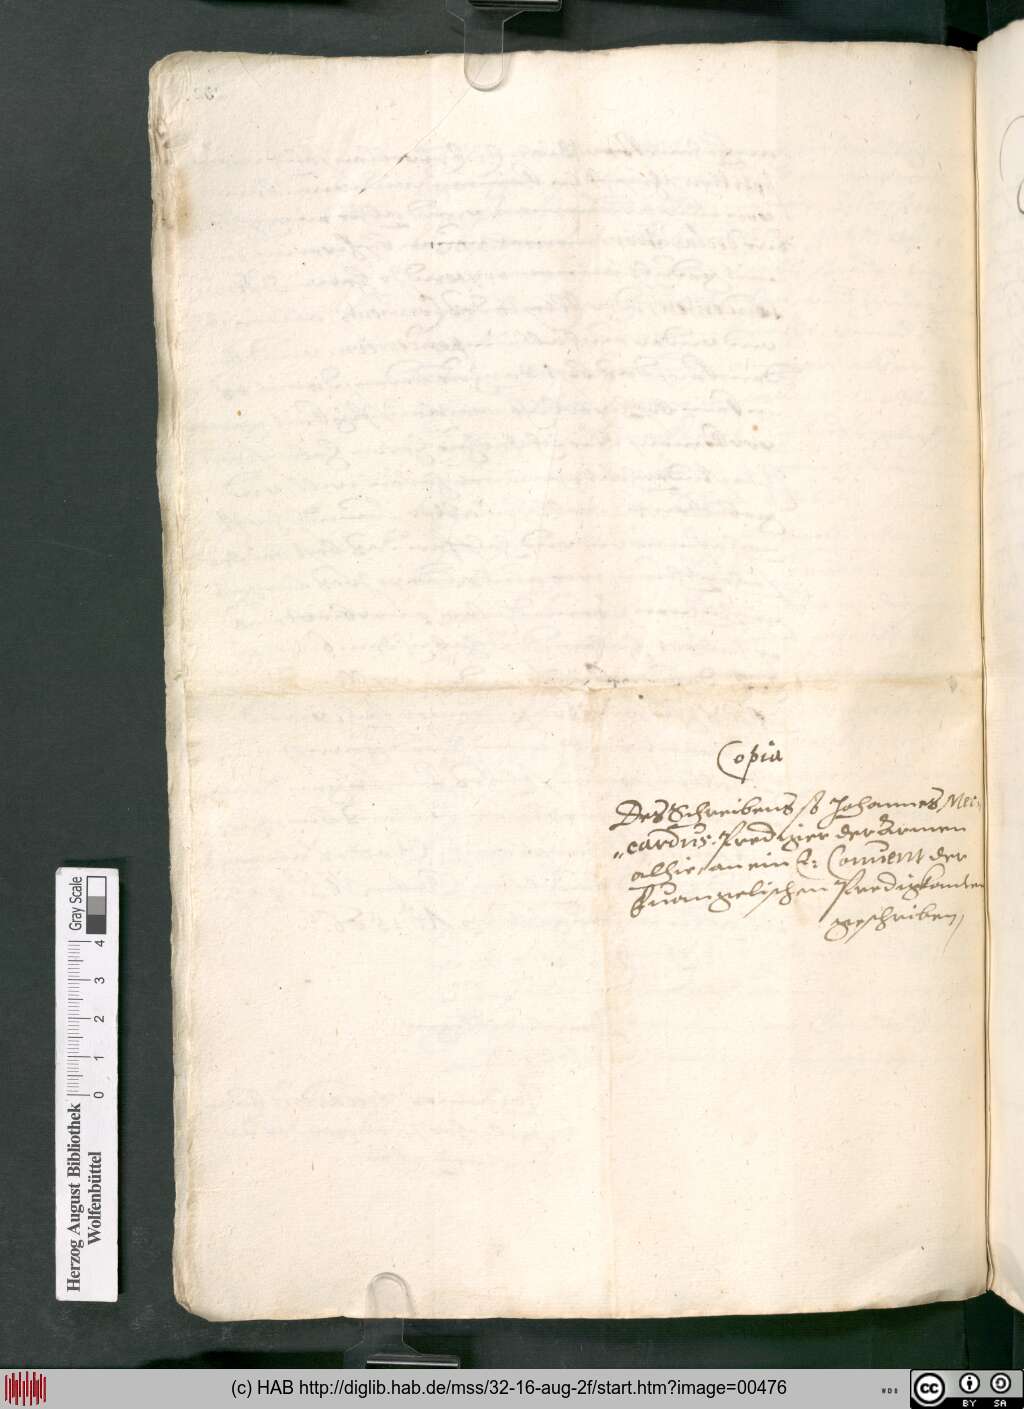 Copia
Des Schreibens so Johannes Mei
cardus. Prediger der Armen
alhie, an ein E: Convent der
Euangelischen Predigkanten
geschriben,
Herzog August Bibliothek
Wolfenbüttel
0 1 2 3 4
Gray Scale
(c) HAB http://diglib.hab.de/mss/32-16-aug-2f/start.htm?image=00476
WDB
cc
BY SA